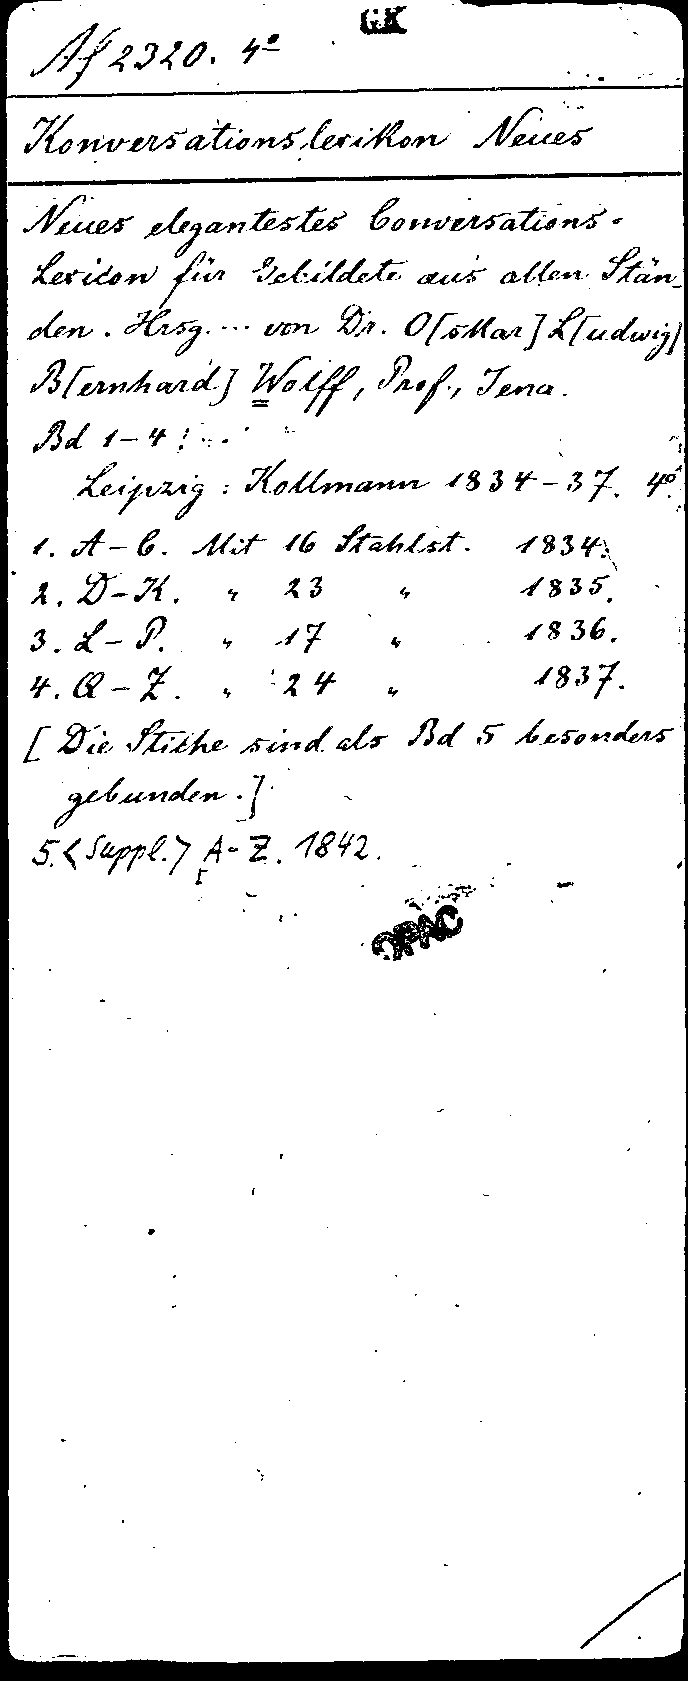 GK
Af 2320. 4°
Konversationslexikon Neues
Neues elegantestes Conversations-
Lexicon für Gebildete aus allen Stän-
den. Hrsg. ... von Dr. O[skar] L[udwig]
B[ernhard] Wolff, Prof., Jena.
Bd 1-4
Leipzig: Kollmann 1834-37. 4°.
1. A-C. Mit 16 Stahlst. 1834.
2. D-K. " 23 " 1835.
3. L-P. " 17 " 1836.
4. Q-Z. " 24 " 1837.
[Die Stiche sind als Bd 5 besonders
gebunden.]
5. <Suppl.> A-Z. 1842.
OPAC